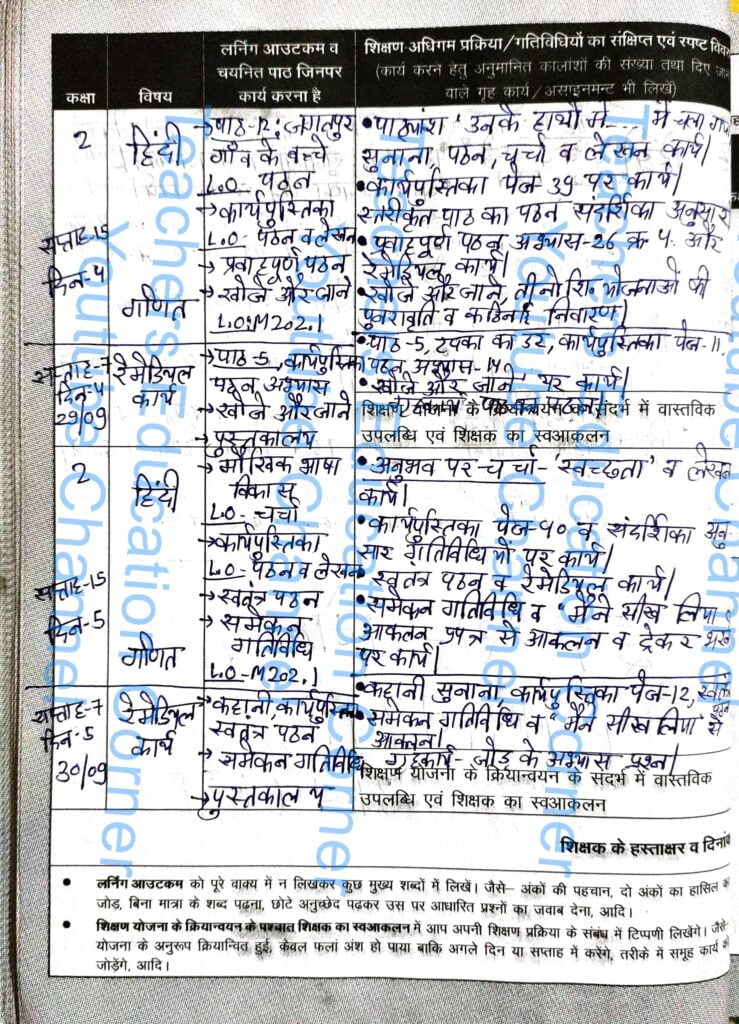 कक्षा
विषय
लर्निंग आउटकम व
चयनित पाठ जिनपर
कार्य करना है
शिक्षण अधिगम प्रक्रिया/गतिविधियों का संक्षिप्त एवं स्पष्ट
(कार्य करने हेतु अनुमानित कालांशों की संख्या तथा दिए
वाले गृह कार्य/असाइनमेंट भी लिखें)
2
सप्ताह-15
दिन-4
हिंदी
गणित
→पाठ-12: जगतपुर
गाँव के बच्चे
L.O- पठन
→कार्यपुस्तिका
L.O- पठन व लेखन
→प्रवाहपूर्ण पठन
→खोजें और जाने
L.O:M202.1
•पाठ्यांश 'उनके हाथों में... में चला
सुनाना, पठन, चर्चा व लेखन कार्य।
•कार्यपुस्तिका पेज-39 पर कार्य।
स्तरीकृत पाठ का पठन संदर्शिका अनुसार
•प्रवाहपूर्ण पठन अभ्यास-26 क्र 4. और
रेमेडियल कार्य।
•खोजें और जाने, तीनों शि॰ योजनाओं की
पुनरावृति व कठिनाई निवारण।
सप्ताह-7
दिन-4
29/09
रेमेडियल
कार्य
→पाठ-5, कार्यपुस्तिका
पठन अभ्यास
→खोजें और जाने
→पुस्तकालय
•पाठ-5, टपका का डर, कार्यपुस्तिका पेज-11,
पठन अभ्यास-14
•खोजें और जाने पर कार्य।
शिक्षण योजना के क्रियान्वयन के संदर्भ में वास्तविक
उपलब्धि एवं शिक्षक का स्वआकलन
2
सप्ताह-15
दिन-5
हिंदी
गणित
→मौखिक भाषा
विकास
L.O- चर्चा
→कार्यपुस्तिका
L.O- पठन व लेखन
→स्वतंत्र पठन
→समेकन
गतिविधि
L.O-M202.1
•अनुभव पर चर्चा-'स्वच्छता' व लेखन
कार्य।
•कार्यपुस्तिका पेज-40 व संदर्शिका अनु-
सार गतिविधियों पर कार्य।
•स्वतंत्र पठन व रेमेडियल कार्य।
•समेकन गतिविधि व 'मैंने सीख लिया'
आकलन प्रपत्र से आकलन व ट्रेकर
पर कार्य।
सप्ताह-7
दिन-5
30/09
रेमेडियल
कार्य
→कहानी, कार्यपुस्तिका
स्वतंत्र पठन
→समेकन गतिविधि
→पुस्तकालय
•कहानी सुनाना, कार्यपुस्तिका पेज-12,
•समेकन गतिविधि व 'मैंने सीख लिया' से
आकलन।
गृहकार्य- जोड़ के अभ्यास प्रश्न।
शिक्षण योजना के क्रियान्वयन के संदर्भ में वास्तविक
उपलब्धि एवं शिक्षक का स्वआकलन
शिक्षक के हस्ताक्षर व दिनांक
• लर्निंग आउटकम को पूरे वाक्य में न लिखकर कुछ मुख्य शब्दों में लिखें। जैसे– अंकों की पहचान, दो अंकों का हासिल
जोड़, बिना मात्रा के शब्द पढ़ना, छोटे अनुच्छेद पढ़कर उस पर आधारित प्रश्नों का जवाब देना, आदि।
• शिक्षण योजना के क्रियान्वयन के पश्चात शिक्षक का स्वआकलन में आप अपनी शिक्षण प्रक्रिया के संबंध में टिप्पणी लिखेंगे। जैसे
योजना के अनुरूप क्रियान्वित हुई, केवल फलां अंश हो पाया बाकि अगले दिन या सप्ताह में करेंगे, तरीके में समूह कार्य
जोड़ेंगे, आदि।
Teachers Education Corner
Youtube Channel
Teachers Education Corner
Youtube Channel
Teachers Education Corner
Youtube Channel